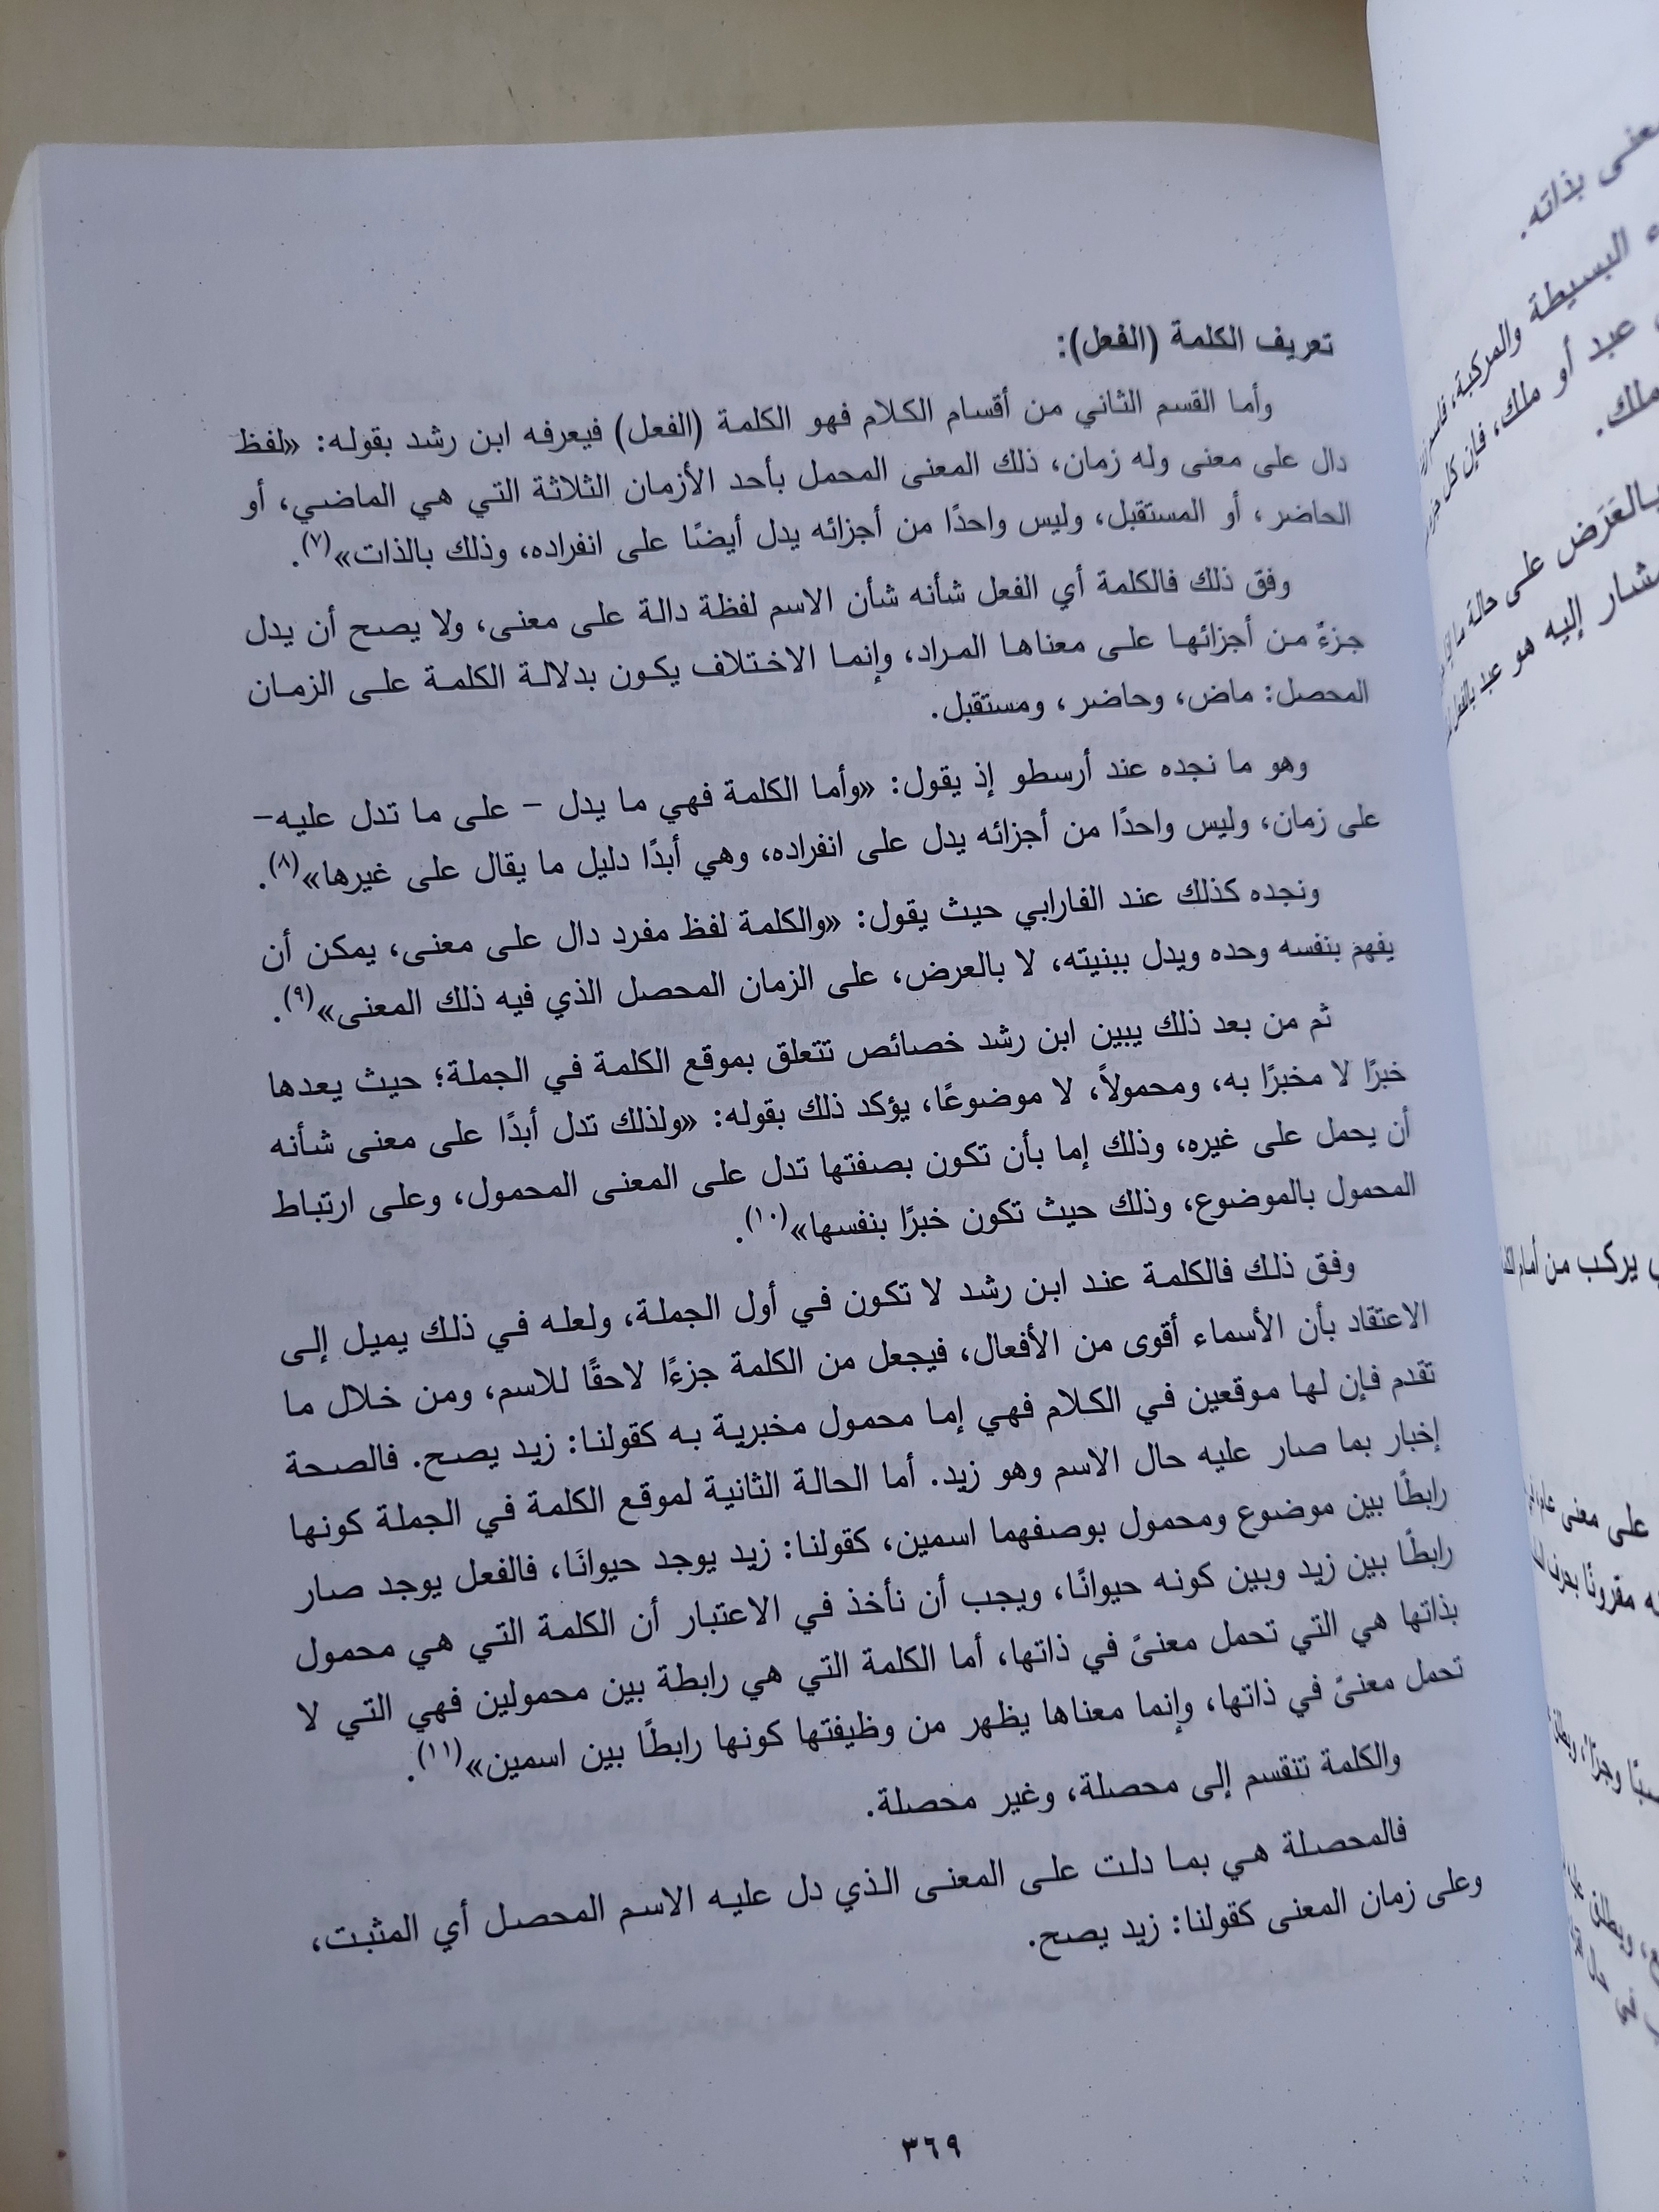 تعريف الكلمة (الفعل):
وأما القسم الثاني من أقسام الكلام فهو الكلمة (الفعل) فيعرفه ابن رشد بقوله: «لفظ
دال على معنى وله زمان، ذلك المعنى المحمل بأحد الأزمان الثلاثة التي هي الماضي، أو
الحاضر، أو المستقبل، وليس واحدًا من أجزائه يدل أيضًا على انفراده، وذلك بالذات»(٧).
وفق ذلك فالكلمة أي الفعل شأنه شأن الاسم لفظة دالة على معنى، ولا يصح أن يدل
جزءٌ من أجزائها على معناها المراد، وإنما الاختلاف يكون بدلالة الكلمة على الزمان
المحصل: ماض، وحاضر، ومستقبل.
وهو ما نجده عند أرسطو إذ يقول: «وأما الكلمة فهي ما يدل – على ما تدل عليه–
على زمان، وليس واحدًا من أجزائه يدل على انفراده، وهي أبدًا دليل ما يقال على غيرها»(٨).
ونجده كذلك عند الفارابي حيث يقول: «والكلمة لفظ مفرد دال على معنى، يمكن أن
يفهم بنفسه وحده ويدل ببنيته، لا بالعرض، على الزمان المحصل الذي فيه ذلك المعنى»(٩).
ثم من بعد ذلك يبين ابن رشد خصائص تتعلق بموقع الكلمة في الجملة؛ حيث يعدها
خبرًا لا مخبرًا به، ومحمولاً، لا موضوعًا، يؤكد ذلك بقوله: «ولذلك تدل أبدًا على معنى شأنه
أن يحمل على غيره، وذلك إما بأن تكون بصفتها تدل على المعنى المحمول، وعلى ارتباط
المحمول بالموضوع، وذلك حيث تكون خبرًا بنفسها»(١٠).
وفق ذلك فالكلمة عند ابن رشد لا تكون في أول الجملة، ولعله في ذلك يميل إلى
الاعتقاد بأن الأسماء أقوى من الأفعال، فيجعل من الكلمة جزءًا لاحقًا للاسم، ومن خلال ما
تقدم فإن لها موقعين في الكلام فهي إما محمول مخبرية به كقولنا: زيد يصح. فالصحة
إخبار بما صار عليه حال الاسم وهو زيد. أما الحالة الثانية لموقع الكلمة في الجملة كونها
رابطًا بين موضوع ومحمول بوصفهما اسمين، كقولنا: زيد يوجد حيوانًا، فالفعل يوجد صار
رابطًا بين زيد وبين كونه حيوانًا، ويجب أن نأخذ في الاعتبار أن الكلمة التي هي محمول
بذاتها هي التي تحمل معنىً في ذاتها، أما الكلمة التي هي رابطة بين محمولين فهي التي لا
تحمل معنىً في ذاتها، وإنما معناها يظهر من وظيفتها كونها رابطًا بين اسمين»(١١).
والكلمة تنقسم إلى محصلة، وغير محصلة.
فالمحصلة هي بما دلت على المعنى الذي دل عليه الاسم المحصل أي المثبت،
وعلى زمان المعنى كقولنا: زيد يصح.
٣٦٩
بذاته.
البسيطة والمركبة،
عبد أو ملك، فإن كل
ملك.
بالعَرَض على حالة
إليه هو عبد
يركب من
على معنى
مقرونًا بحرف